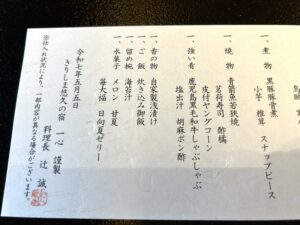 一、煮　物　黒豚豚骨煮
小芋　椎茸　スナップピース
一、焼　物　青箭魚若狭焼
茗荷寿司　酢橘
皮付ヤングコーン
一、強い肴　鹿児島黒毛和牛しゃぶしゃぶ
塩出汁　胡麻ポン酢
一、香の物　自家製浅漬け
一、ご　飯　炊き込み御飯
一、留め椀　海苔汁
一、水菓子　メロン　甘夏
苺大福　日向夏ゼリー
令和七年五月五日
きりしま悠久の宿　一心　謹製
料理長　辻　誠
※仕入れ状況により、一部内容が異なる場合がございます。